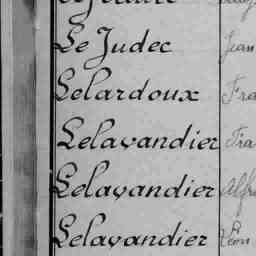 Le Judec Jean
Lelardoux Fra
Lelavandier Fra
Lelavandier Alfr
Lelavandier Léon